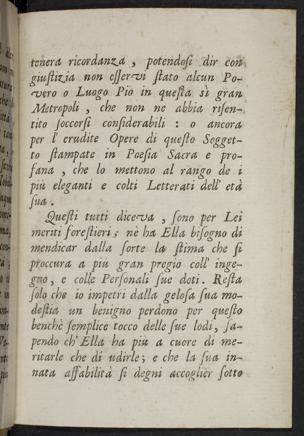 tenera ricordanza, potendosi dir con
giustizia non esservi stato alcun Po-
vero o Luogo Pio in questa sì gran
Metropoli, che non ne abbia risen-
tito soccorsi considerabili : o ancora
per l' erudite Opere di questo Sogget-
to stampate in Poesia Sacra e pro-
fana, che lo mettono al rango de i
più eleganti e colti Letterati dell' età
sua.
Questi tutti diceva, sono per Lei
meriti forestieri; nè ha Ella bisogno di
mendicar dalla sorte la stima che si
proccura a più gran pregio coll' inge-
gno, e colle Personali sue doti. Resta
solo che io impetri dalla gelosa sua mo-
destia un benigno perdono per questo
benchè semplice tocco delle sue lodi, sa-
pendo ch' Ella ha più a cuore di me-
ritarle che di udirle; e che la sua in-
nata affabilità si degni accoglier sotto